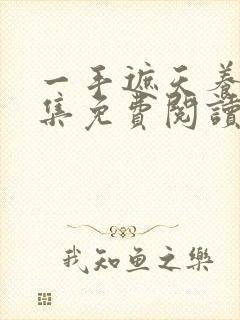 一手遮天養
集免費閱讀
我知鱼之樂